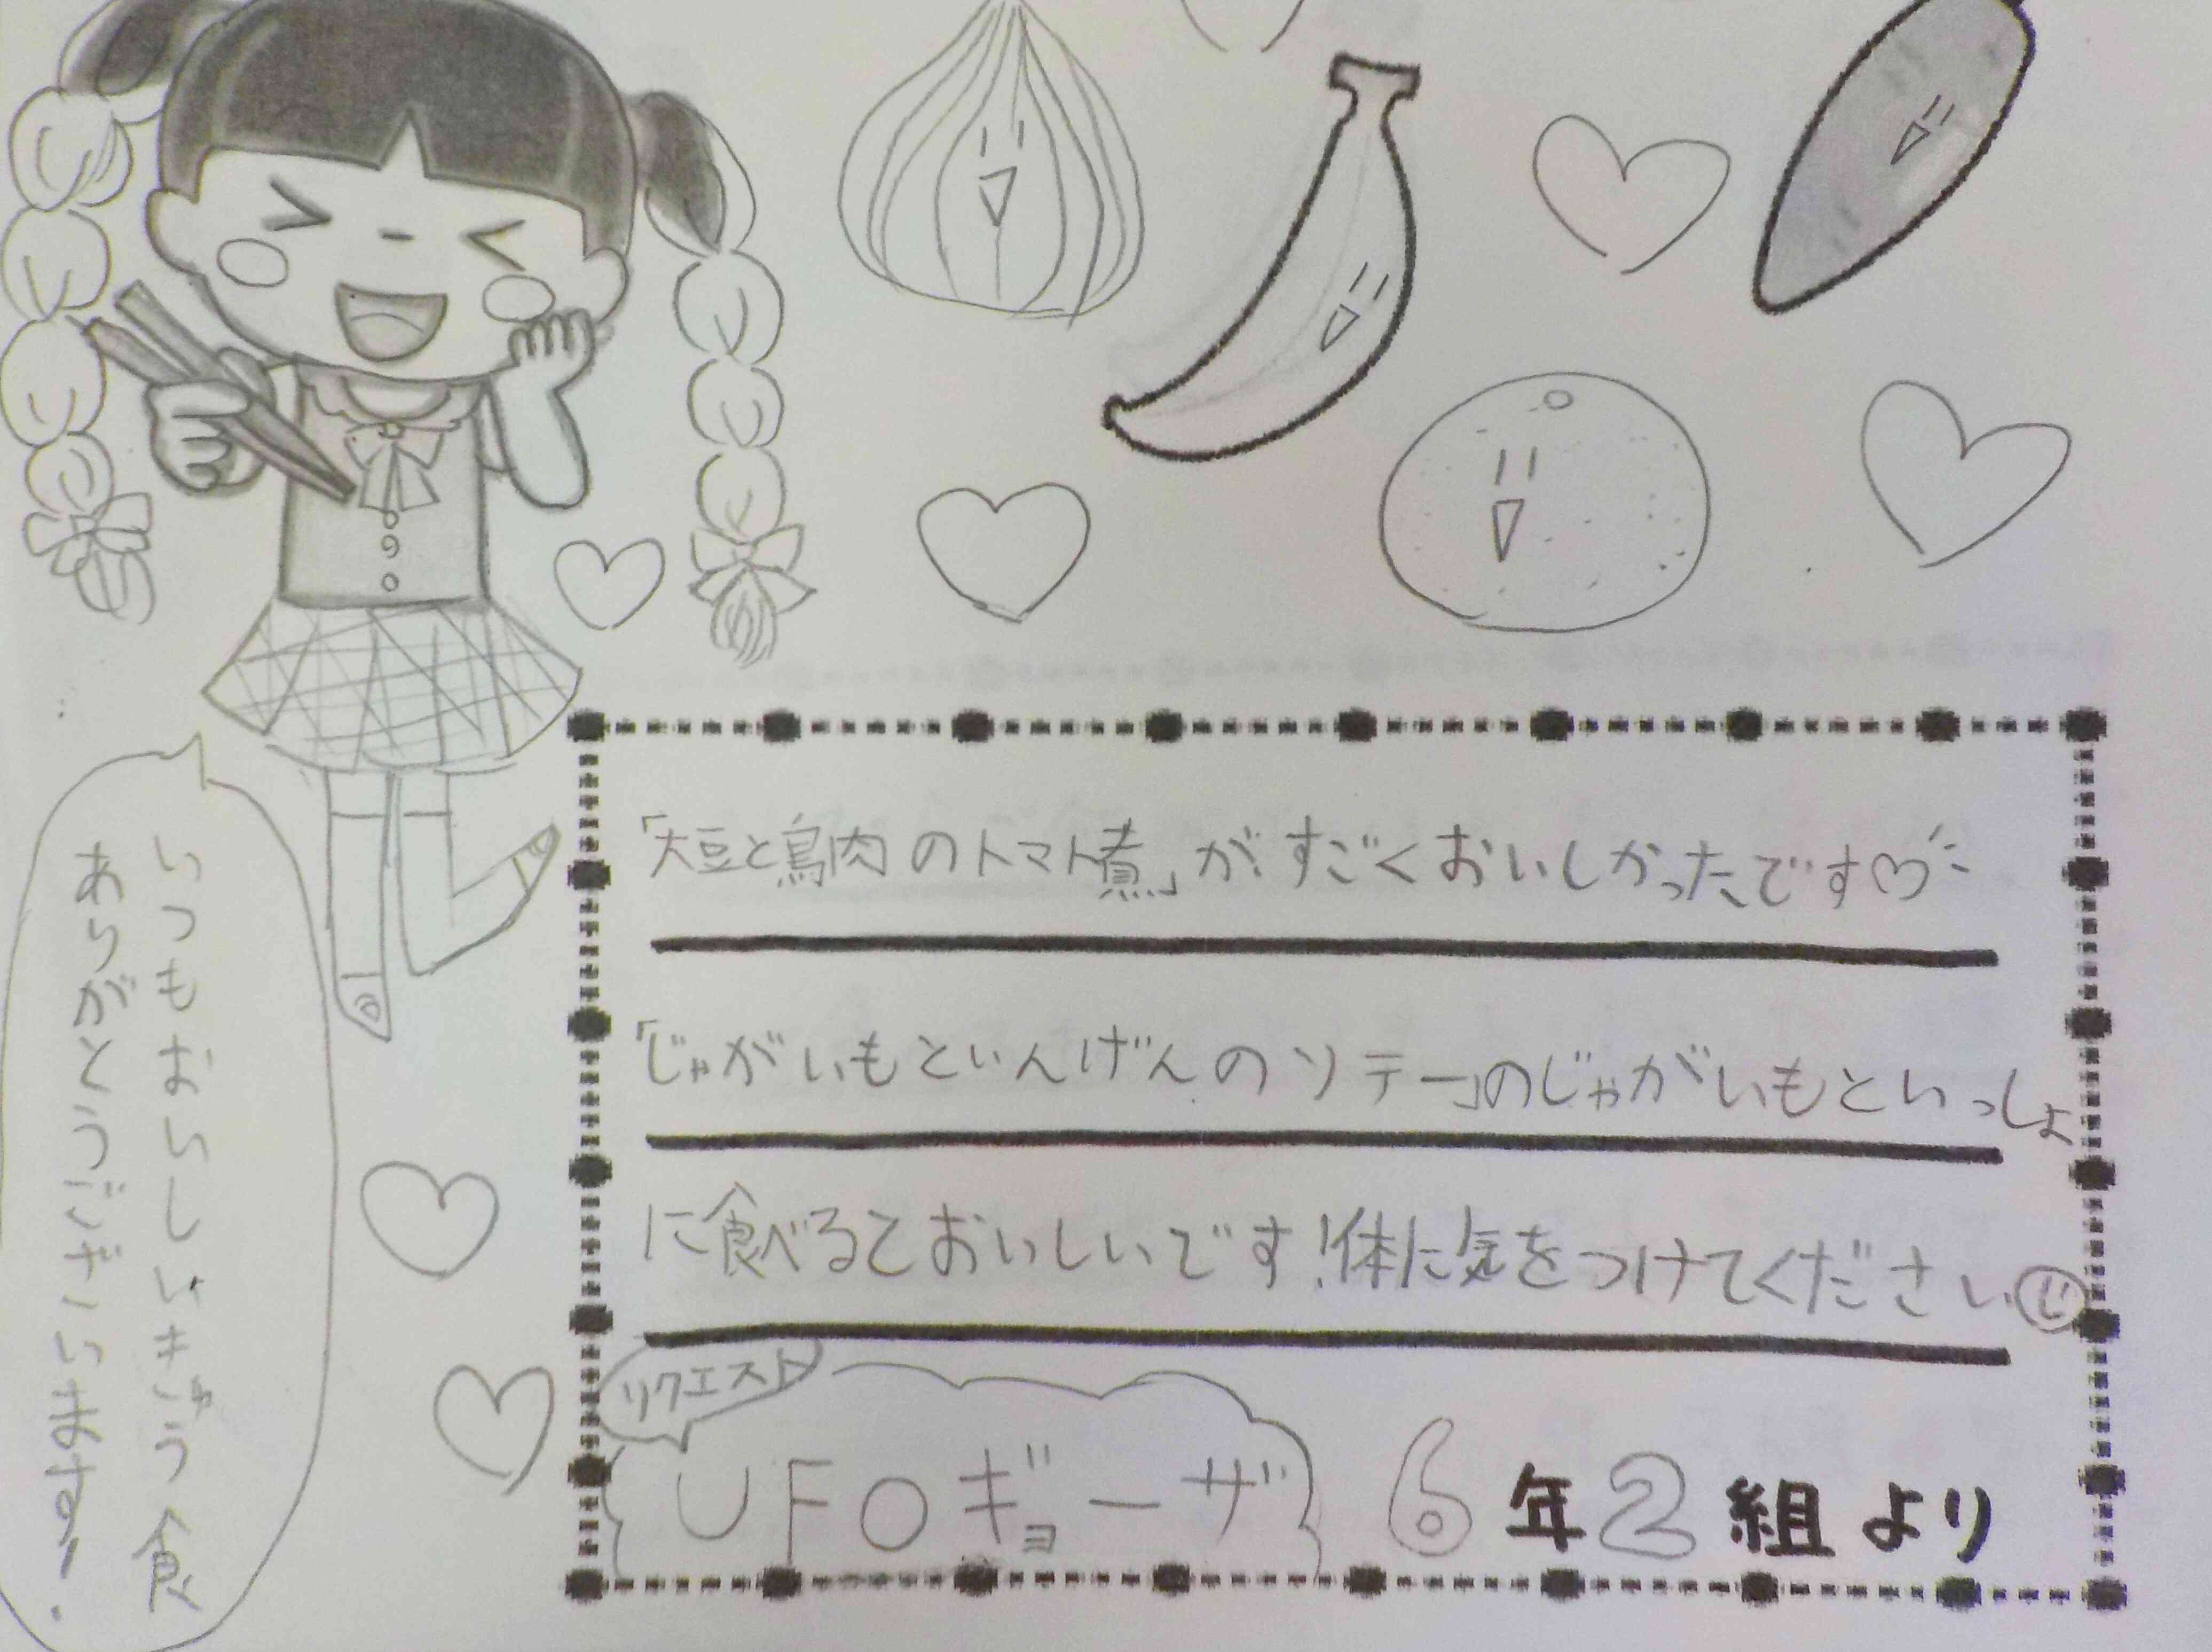 いつもおいしいきゅう食
ありがとうございます!
「大豆と鳥肉のトマト煮」がすごくおいしかったです♡
「じゃがいもといんげんのソテー」のじゃがいもといっしょ
に食べるとおいしいです!体に気をつけてください
リクエスト
UFOギョーザ
6年2組より